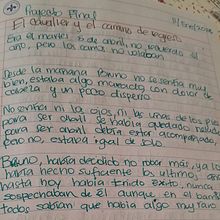 Proyecto Final
El caballer y el camino de regreso
Era el martes 3 de abril, no recuerdo el
año, pero los carros no volaban
Desde la mañana Bruno no se sentía muy
bien, estaba algo mareado con dolor de
cabeza y un poco disperso
No sentía ni los ojos, ni las uñas de los pies
para ser abril se había quedado
para ser abril debría estar acompañado,
pero no, estaba igual de solo
Bruno, había decidido no robar más, ya lo
había hecho suficiente los ultimos años
hasta hoy había tenido exito, nunca
sospechaban de él aunque en el barrio
todos sabían que había algo muy